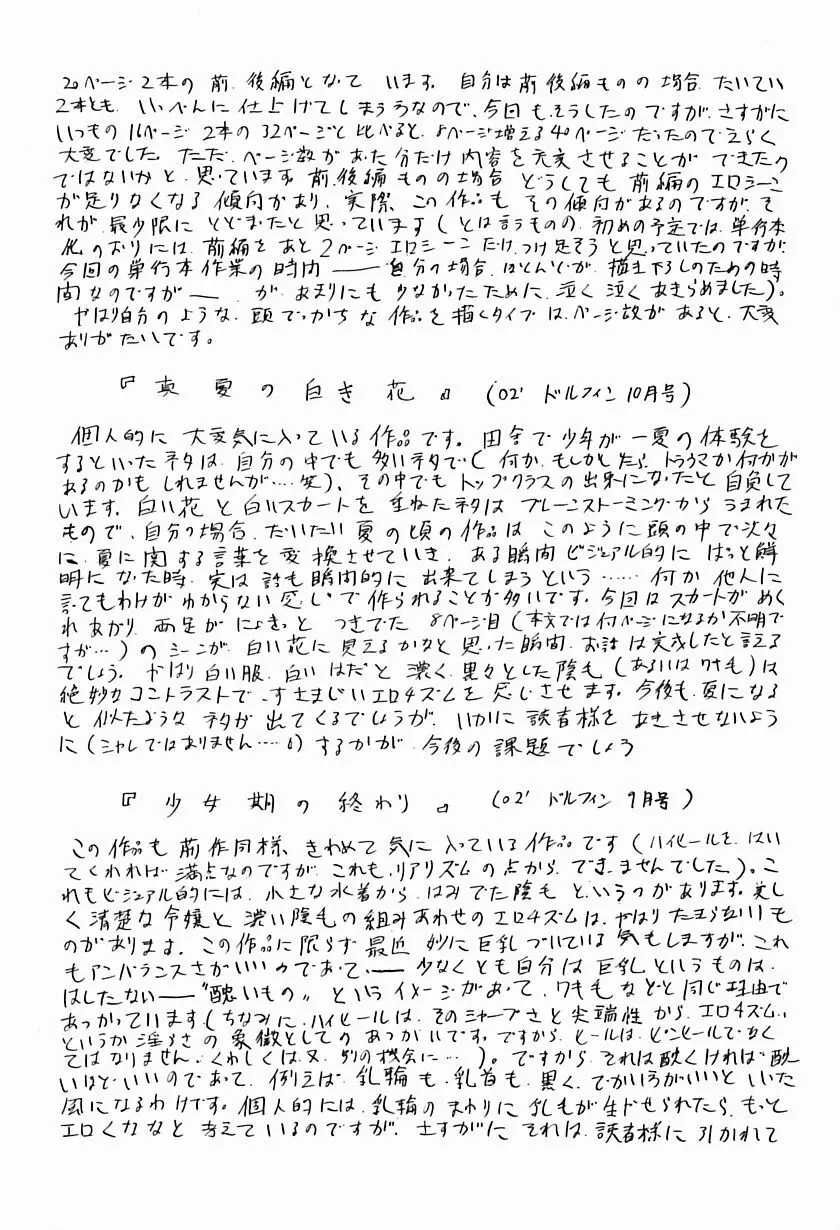 20ページ2本の前、後編となって います。自分は前後編ものの場合、たいてい
2本とも、いっぺんに仕上げてしまうなので、今回もそうしたのですが、さすがに
いつもの16ページ2本の32ページと比べると、8ページ増える40ページだったのでえらく
大変でした。ただ、ページ数があった分だけ内容を充実させることができたの
ではないかと、思っています。前、後編ものの場合 どうしても 前編のエロシーン
が足りなくなる傾向があり、実際、この作品も その傾向があるのですが、そ
れが、最少限に とどまったと思っています(とは言うものの、初めの予定では、単行本
化のおりには、前編をあと2ページエロシーンだけ、つけ足そうと思っていたのですが、
今回の単行本作業の時間――自分の場合、ほとんどが、描き下ろしのための時
間なのですが――が、あまりにも少なかったために、泣く泣くあきらめました)。
やはり自分のような、頭でっかちな作品を描くタイプは、ページ数があると、大変
ありがたいです。
『真夏の白き花』(02' ドルフィン10月号)
個人的に大変気に入っている作品です。田舎で少年が一夏の体験を
するといったネタは、自分の中でも多いネタで(何か、もしかしたら、トラウマか何かが
あるのかもしれませんが‥‥笑)、その中でもトップクラスの出来になったと自負して
います。白い花と白いスカートを重ねたネタは ブレーンストーミングからうまれた
もので、自分の場合、だいたい夏の頃の作品は このように頭の中で次々
に、夏に関する言葉を変換させていき、ある瞬間ビジュアル的に はっと鮮
明になった時、実は話も瞬間的に出来てしまうという……何か他人に
言ってもわけがわからない感じで作られることが多いです。今回はスカートがめく
れあがり、両足がにょきっとつきでた 8ページ目(本文では何ページになるか不明で
すが…)のシーンが、白い花に見えるかなと思った瞬間、お話は完成したと言える
でしょう。やはり白い服、白いはだと 濃く、黒々とした陰毛(あるいはワキ毛)は
絶妙なコントラストで、すさまじいエロチズムを感じさせます。今後も、夏になる
と似たようなネタが出てくるでしょうが、いかに読者様をあきさせないよう
に(シャレではありません‥‥)するかが、今後の課題でしょう
『少女期の終わり』(02' ドルフィン9月号)
この作品も前作同様、きわめて気に入っている作品です(ハイヒールを、はい
てくれれば満点なのですが、これも、リアリズムの点から、できませんでした)。こ
れもビジュアル的には、小さな水着から、はみでた陰毛というのがあります。美し
く清楚な令嬢と濃い陰毛の組みあわせのエロチズムは、やはりたまらないもも
のがあります。この作品に限らず最近 妙に巨乳づいている気もしますが、これ
もアンバランスさがいいのであって、――少なくとも自分は巨乳というものは、
はしたない――“醜いもの”というイメージがあって、ワキ毛などと同じ理由で
あつかっています(ちなみに、ハイヒールは、そのシャープさと尖端性から、エロチズム、
というか淫らさの象徴としてのあつかいです。ですから、ヒールは、ピンヒールでなく
てはなりません。くわしくは、又、別の機会に…)。ですから、それは醜くければ醜
いほどいいのであって、例えば、乳輪も、乳首も、黒く、でかいほうがいいといった
風になるわけです。個人的には、乳輪のまわりに乳毛が生やせられたら、もっと
エロくなるなと考えているのですが、さすがに それは、読者様に引かれて